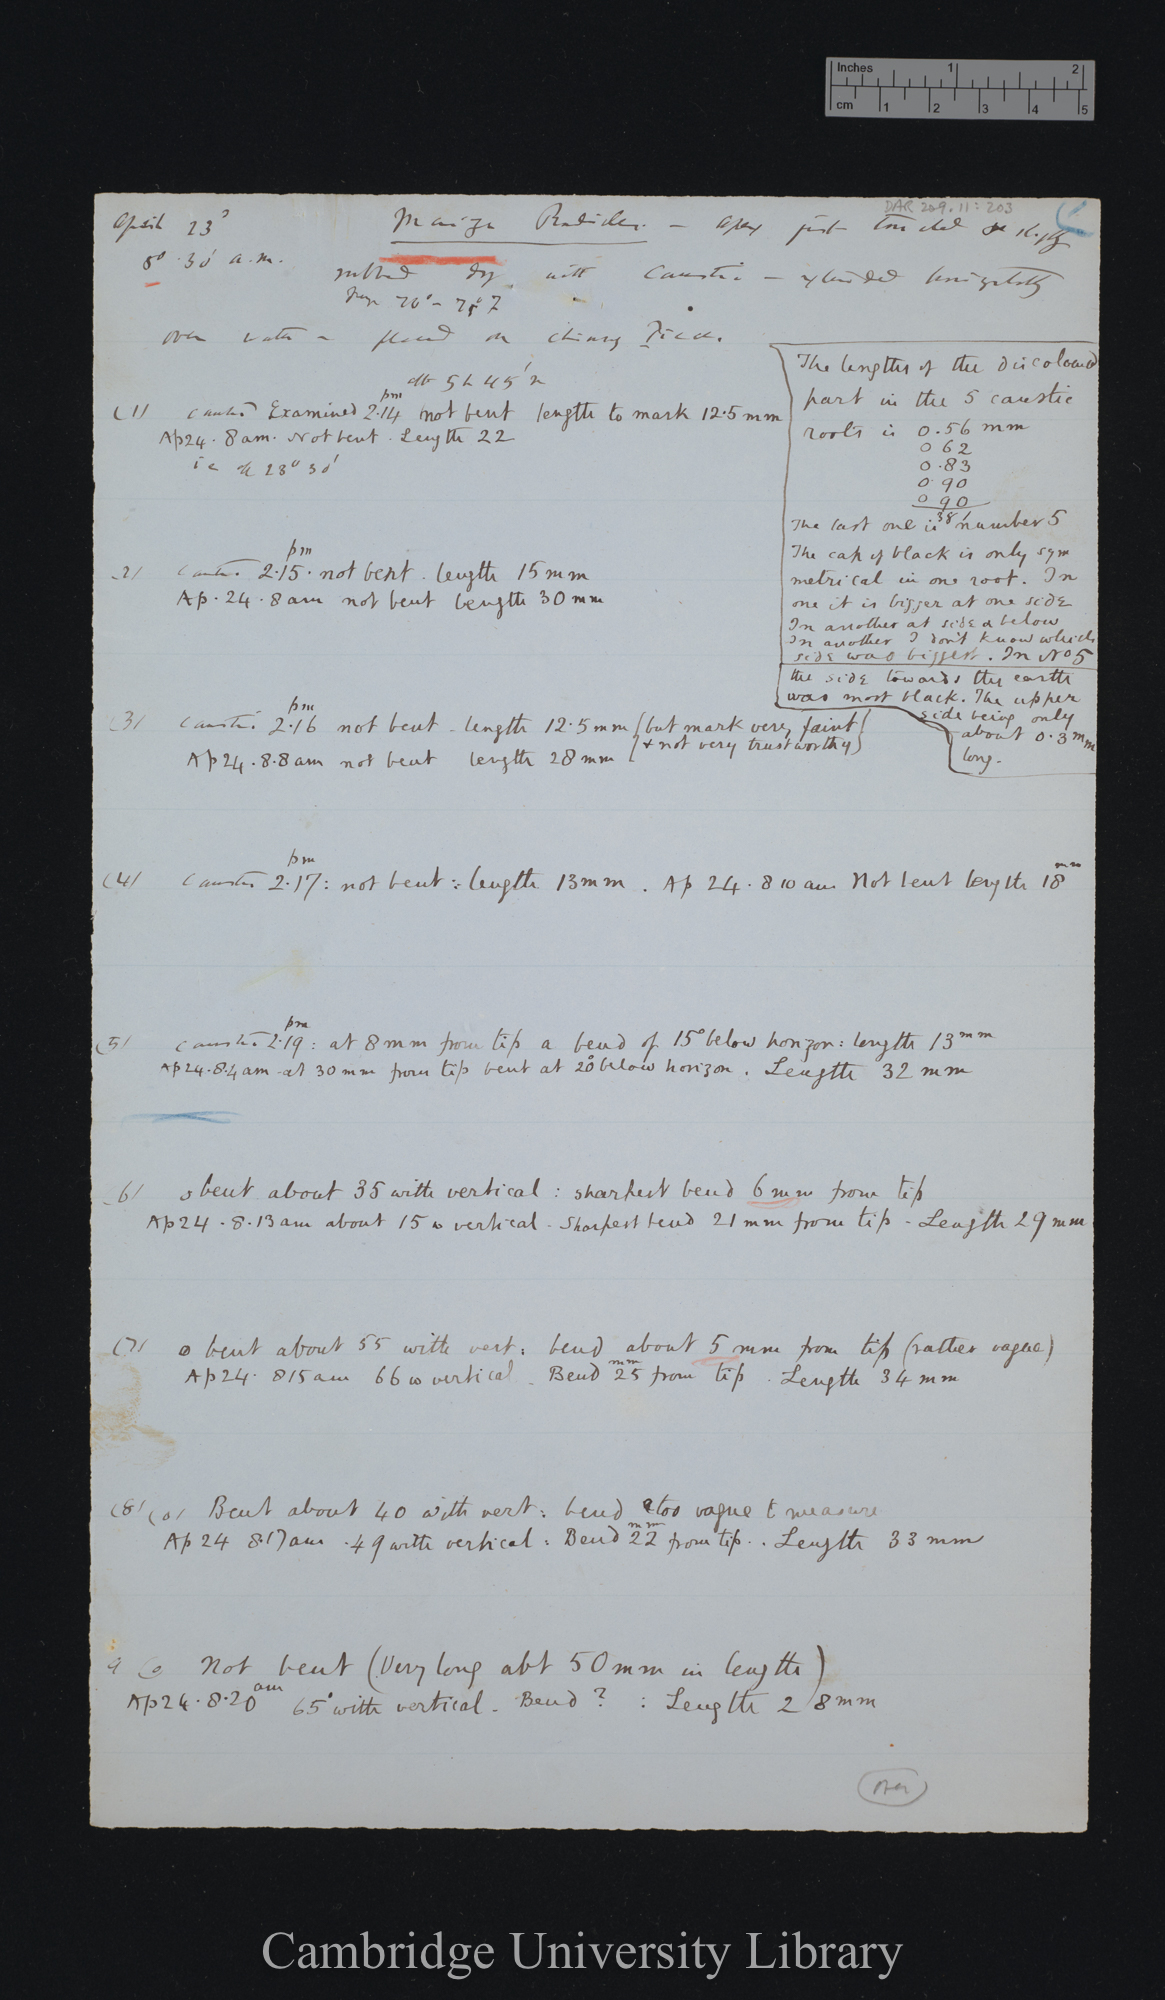 Inches 1 2
cm 1 2 3 4 5
DAR 209.11:203
April 23d Maize Radicles — apex just touched or slightly
8° .30' a.m. rubbed dry with Caustic — extended horizontally
Temp 70° –
over water — placed on chimney Piece.
aft 5h 45'm
(1) caustic Examined 2.14 pm not bent length to mark 12.5 mm
Ap 24. 8 am. Not bent. Length 22
i e 23° 30'
2) Caustic 2.15 pm. not bent. length 15 mm
Ap. 24. 8 am not bent length 30 mm
(3) Caustic 2.16 pm not bent – length 12.5 mm (but mark very faint
& not very trustworthy)
Ap 24. 8.8 am not bent length 28 mm
(4) Caustic 2.17 pm: not bent: length 13 mm. Ap 24. 8 10 am Not bent length 18 mm
(5) Caustic 2.19 pm: at 8 mm from tip a bend of 15° below horizon: length 13 mm
Ap 24. 8.4 am at 30 mm from tip bent at 20° below horizon. Length 32 mm
6) o bent about 35 with vertical: sharpest bend 6 mm from tip
Ap 24. 8.13 am about 15 w vertical. Sharpest bend 21 mm from tip - Length 29 mm
(7) o bent about 55 with vert: bend about 5 mm from tip (rather vague)
Ap 24. 8 15 am 66 w vertical. Bend 25 mm from tip. Length 34 mm
(8) (o) Bent about 40 with vert: bend too vague t measure
Ap 24 8.17 am . 49 with vertical: Bend 22 mm from tip.. Length 33 mm
9 (o Not bent (Very long abt 50 mm in length)
Ap 24. 8.20 am 65° with vertical. Bend ? : Length 28 mm
over
The lengths of the discoloured
part in the 5 caustic
roots is 0.56 mm
0 62
0.83
0.90
0 90
The last one is number 5
The cap of black is only sym
metrical in one root. In
one it is bigger at one side
In another at side & below
In another I don't know which
side was biggest. In No 5
the side towards the earth
was most black. The upper
side being only
about 0.3 mm
long.
Cambridge University Library